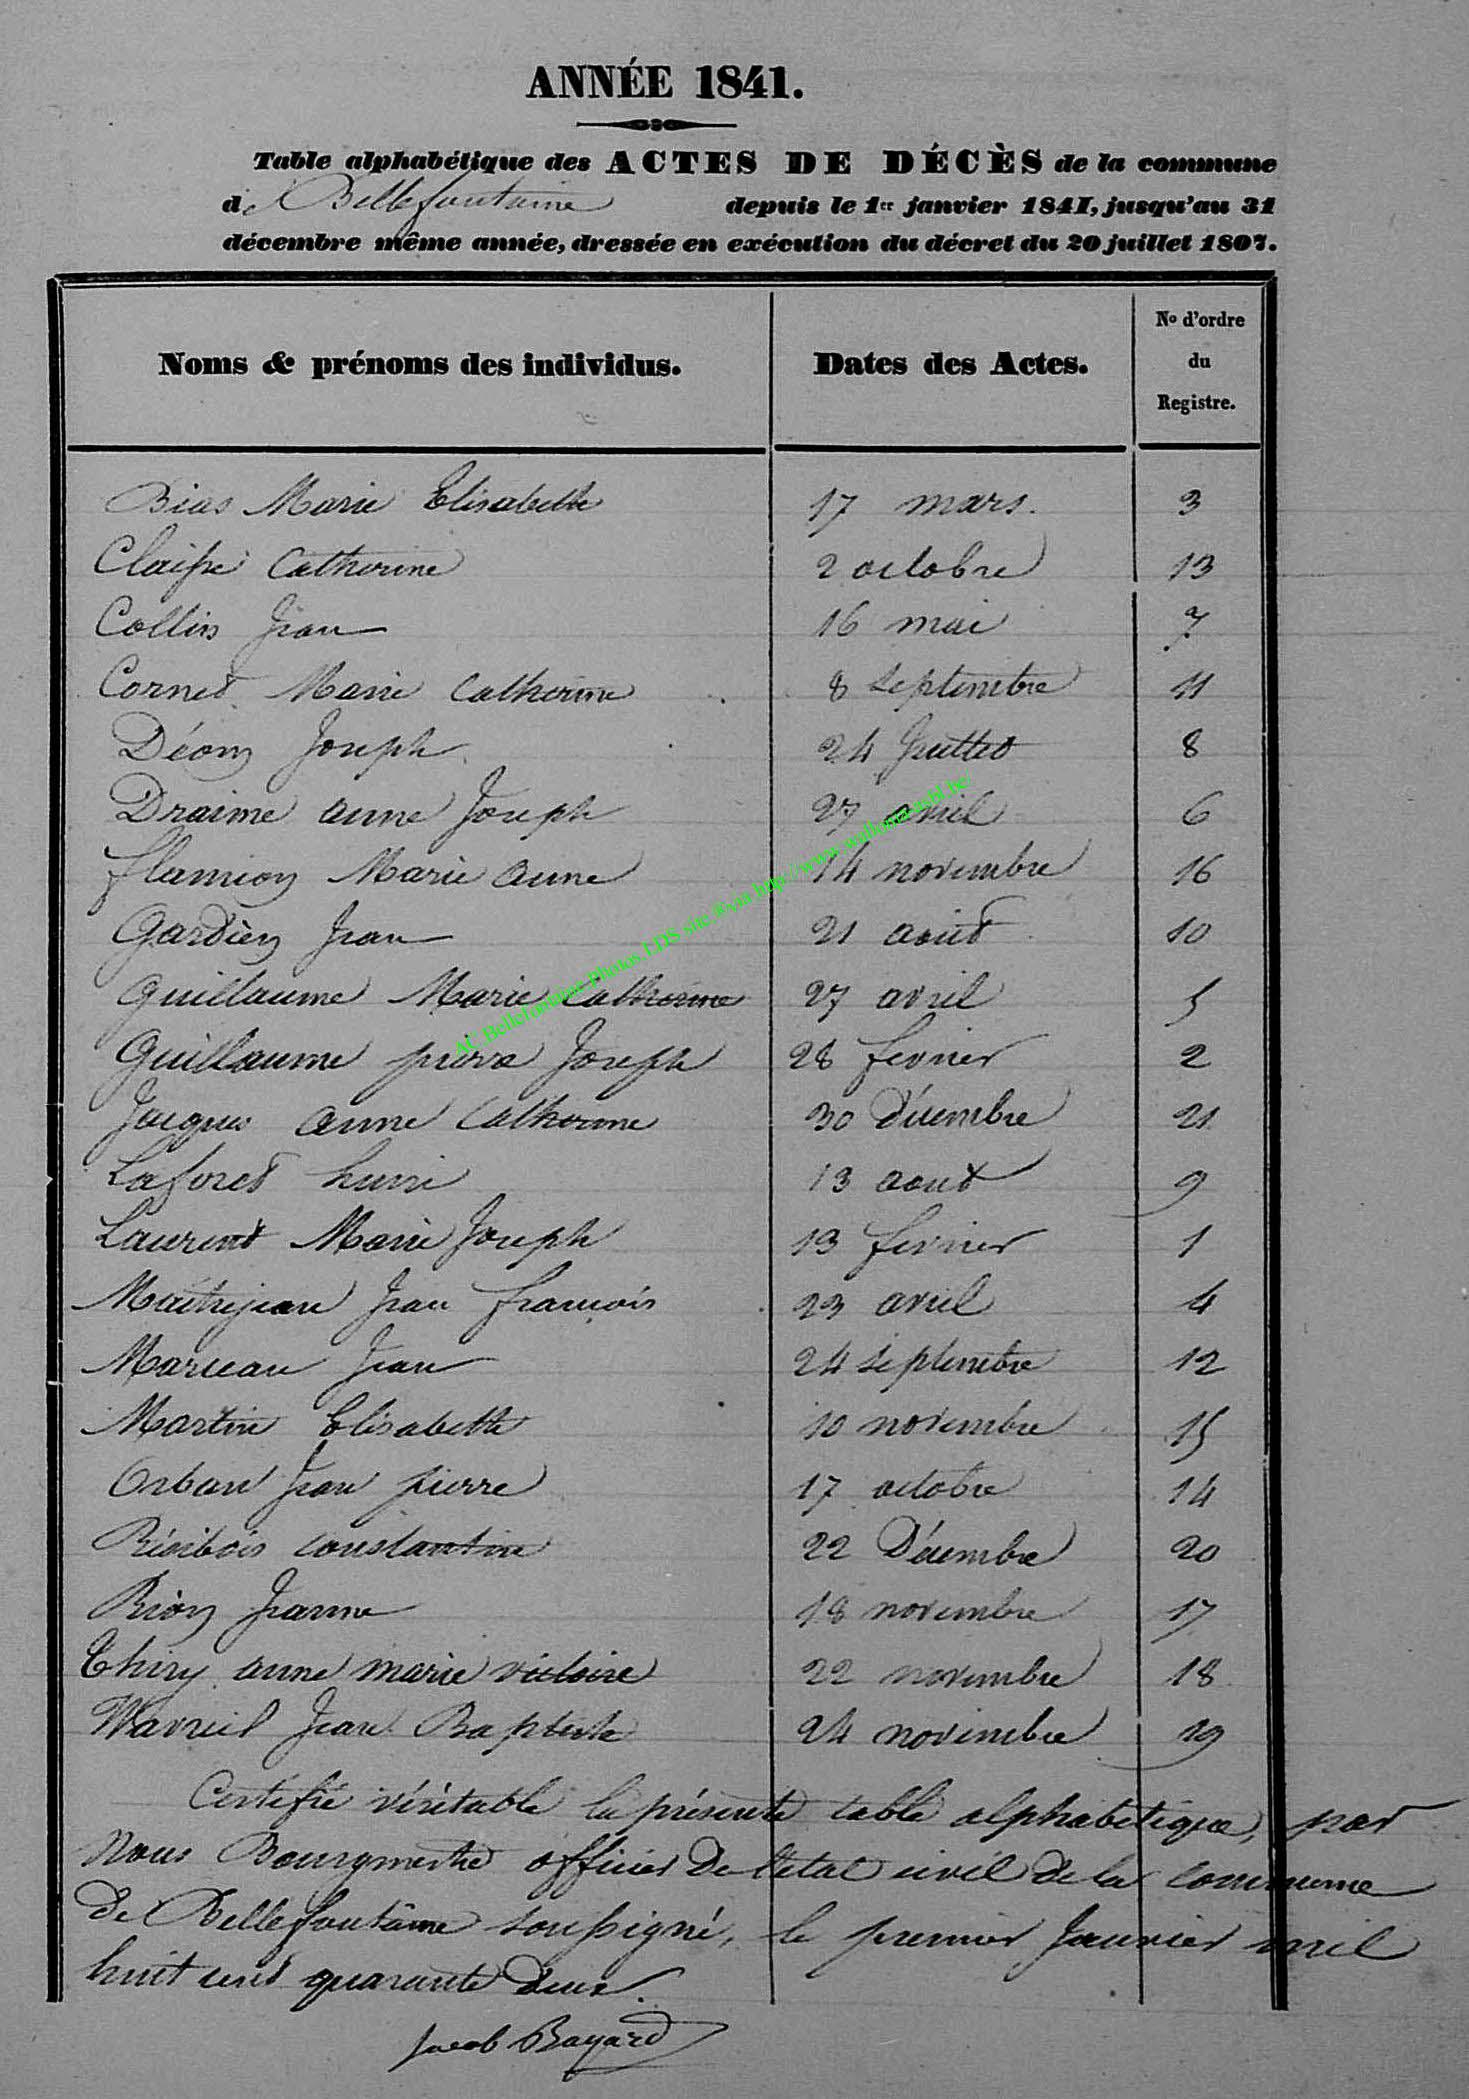 ANNÉE 1841.
Table alphabétique des ACTES DE DÉCÈS de la commune
de Bellefontaine depuis le 1er janvier 1841, jusqu'au 31
décembre même année, dressée en exécution du décret du 20 juillet 1807.
Noms & prénoms des individus. Dates des Actes. No d'ordre du Registre.
Bias Marie Elisabeth 17 mars. 3
Claisse Catherine 2 octobre 13
Collin Jean 16 mai 7
Cornet Marie Catherine 8 septembre 11
Déom Joseph 24 Juillet 8
Draime anne Joseph 27 avril 6
flamion Marie anne 14 novembre 16
Gardien Jean 21 aout 10
Guillaume Marie Catherine 27 avril 5
Guillaume pierre Joseph 28 fevrier 2
Jacques anne Catherine 30 Décembre 21
Laforet henri 13 aout 9
Laurent Marie Joseph 13 fevrier 1
Maitrejean Jean françois 23 avril 4
Marceau Jean 24 septembre 12
Martin Elisabeth 10 novembre 15
Orban Jean pierre 17 octobre 14
constantine 22 Décembre 20
Rion Jeanne 18 novembre 17
Thiry anne marie victoire 22 novembre 18
Wavreil Jean Baptiste 24 novembre 19
Certifié véritable la présente table alphabétique, par
Nous Bourgmestre officier De l'etat civil de la commune
De Bellefontaine soussigné, le premier Janvier mil
huit cent quarante Deux.
Jacob Bayard
AC Bellefontaine Photos LDS site ®via http://www.wallonia-asbl.be/